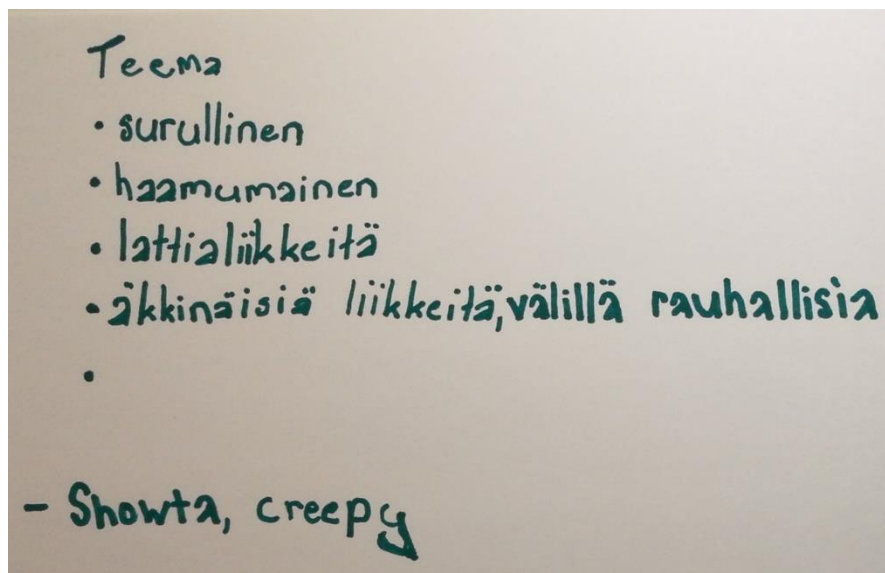 Teema
• surullinen
• haamumainen
• lattialiikkeitä
• äkkinäisiä liikkeitä, välillä rauhallisia
•
- Showta, creepy